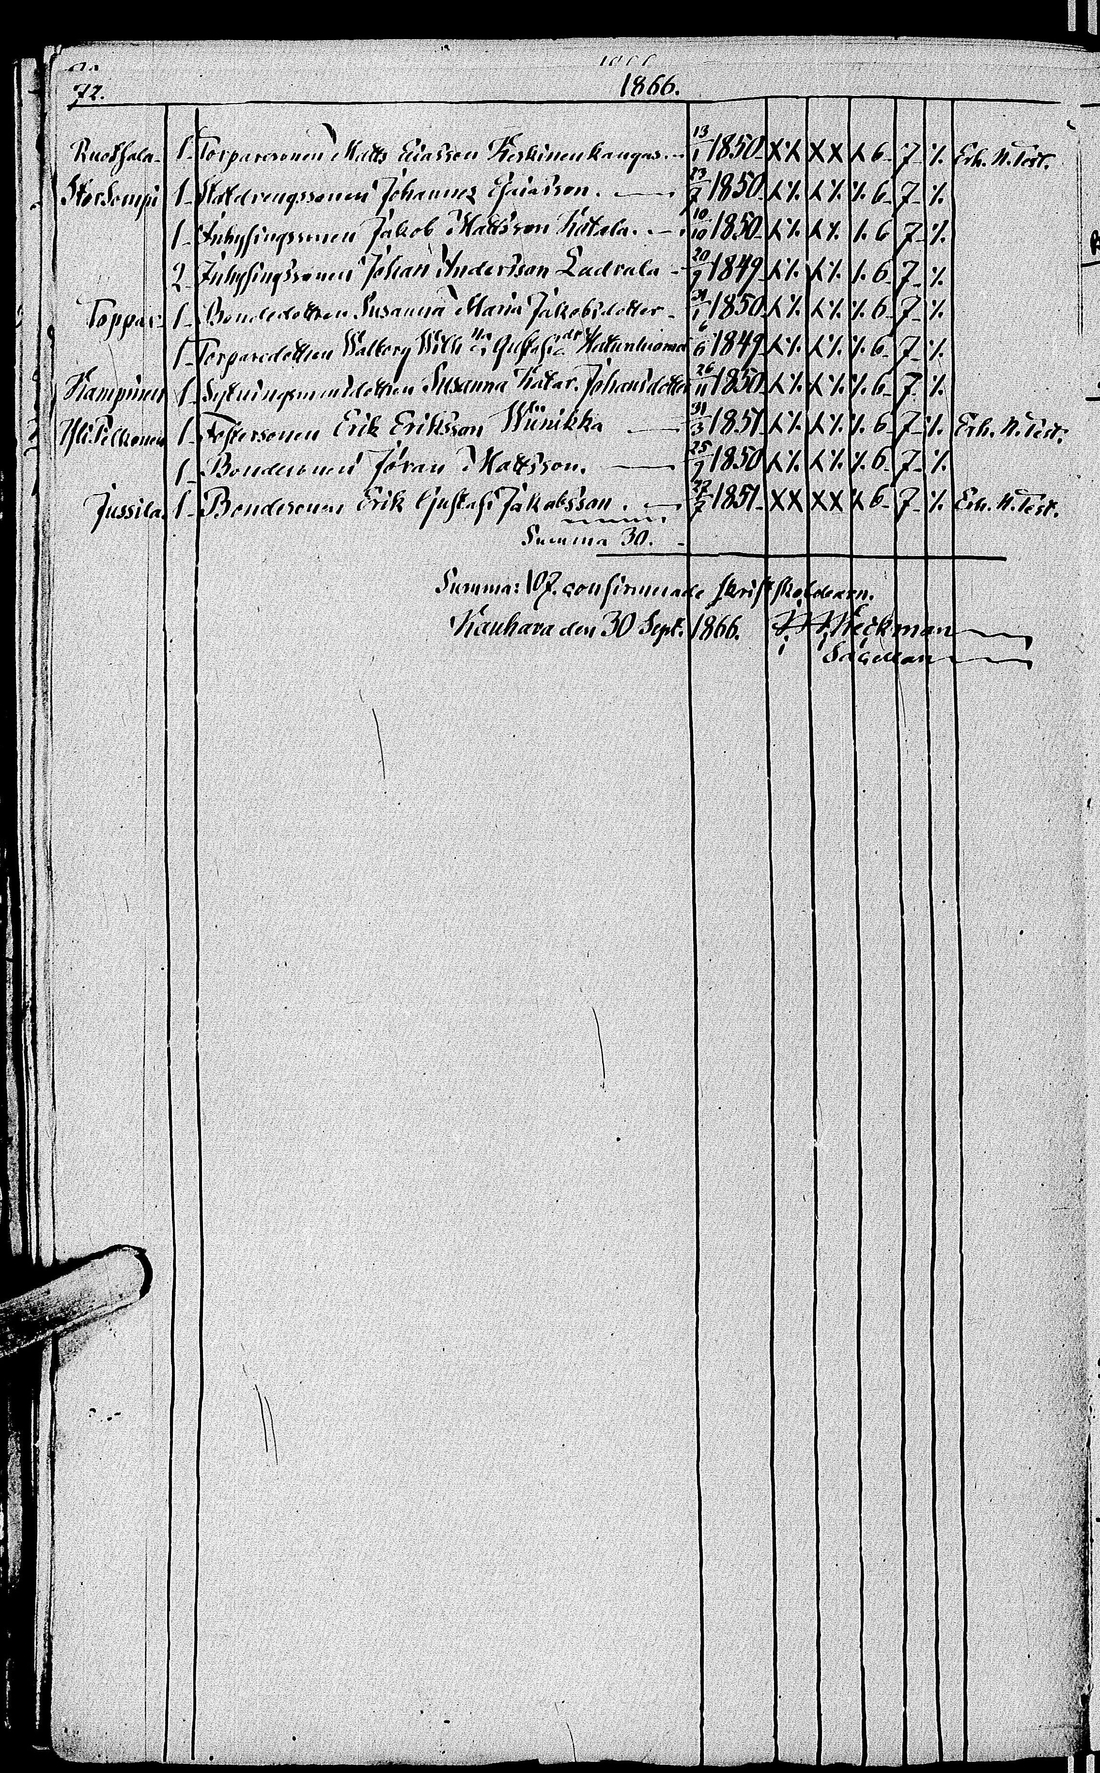 72. 1866.
Ruothala 1 Torparesonen Matts Eliasson Keskinenkangas. 13/1 1850 XX XX X 6 7 % Erh. N. Test.
Storsompi 1 Statdrengssonen Johannes Eliasson. 23/7 1850 X% X% % 6 7 %
1 Inhysingssonen Jakob Mattsson Kotala. 10/10 1850 X% X% % 6 7 %
2 Inhysingssonen Johan Andersson Ladvala 20/9 1849 X% X% % 6 7 %
Toppar 1 Bondedottren Susanna Maria Jakobsdotter 31/1 1850 X% X% % 6 7 %
1 Torparedottren Walborg Wilh:na Gustafsdr 6/6 1849 X% X% % 6 7 %
Kampinen 1 Sytningsmansdottren Susanna Katar. Johansdotter 26/11 1850 X% X% % 6 7 %
Yli Pelkonen 1 Fostersonen Erik Eriksson Wiinikka 31/3 1851 X% X% % 6 7 % Erh. N. Test.
1 Bondesonen Jöran Mattsson. 25/9 1850 X% X% % 6 7 %
Jussila 1 Bondesonen Erik Gustaf Jakobsson. 22/7 1851 XX XX X 6 7 % Erh. N. Test.
Summa 30.
Summa: 107. confirmerade skriftskolebarn.
Kauhava den 30 Sept. 1866. Heikman
Sacellan